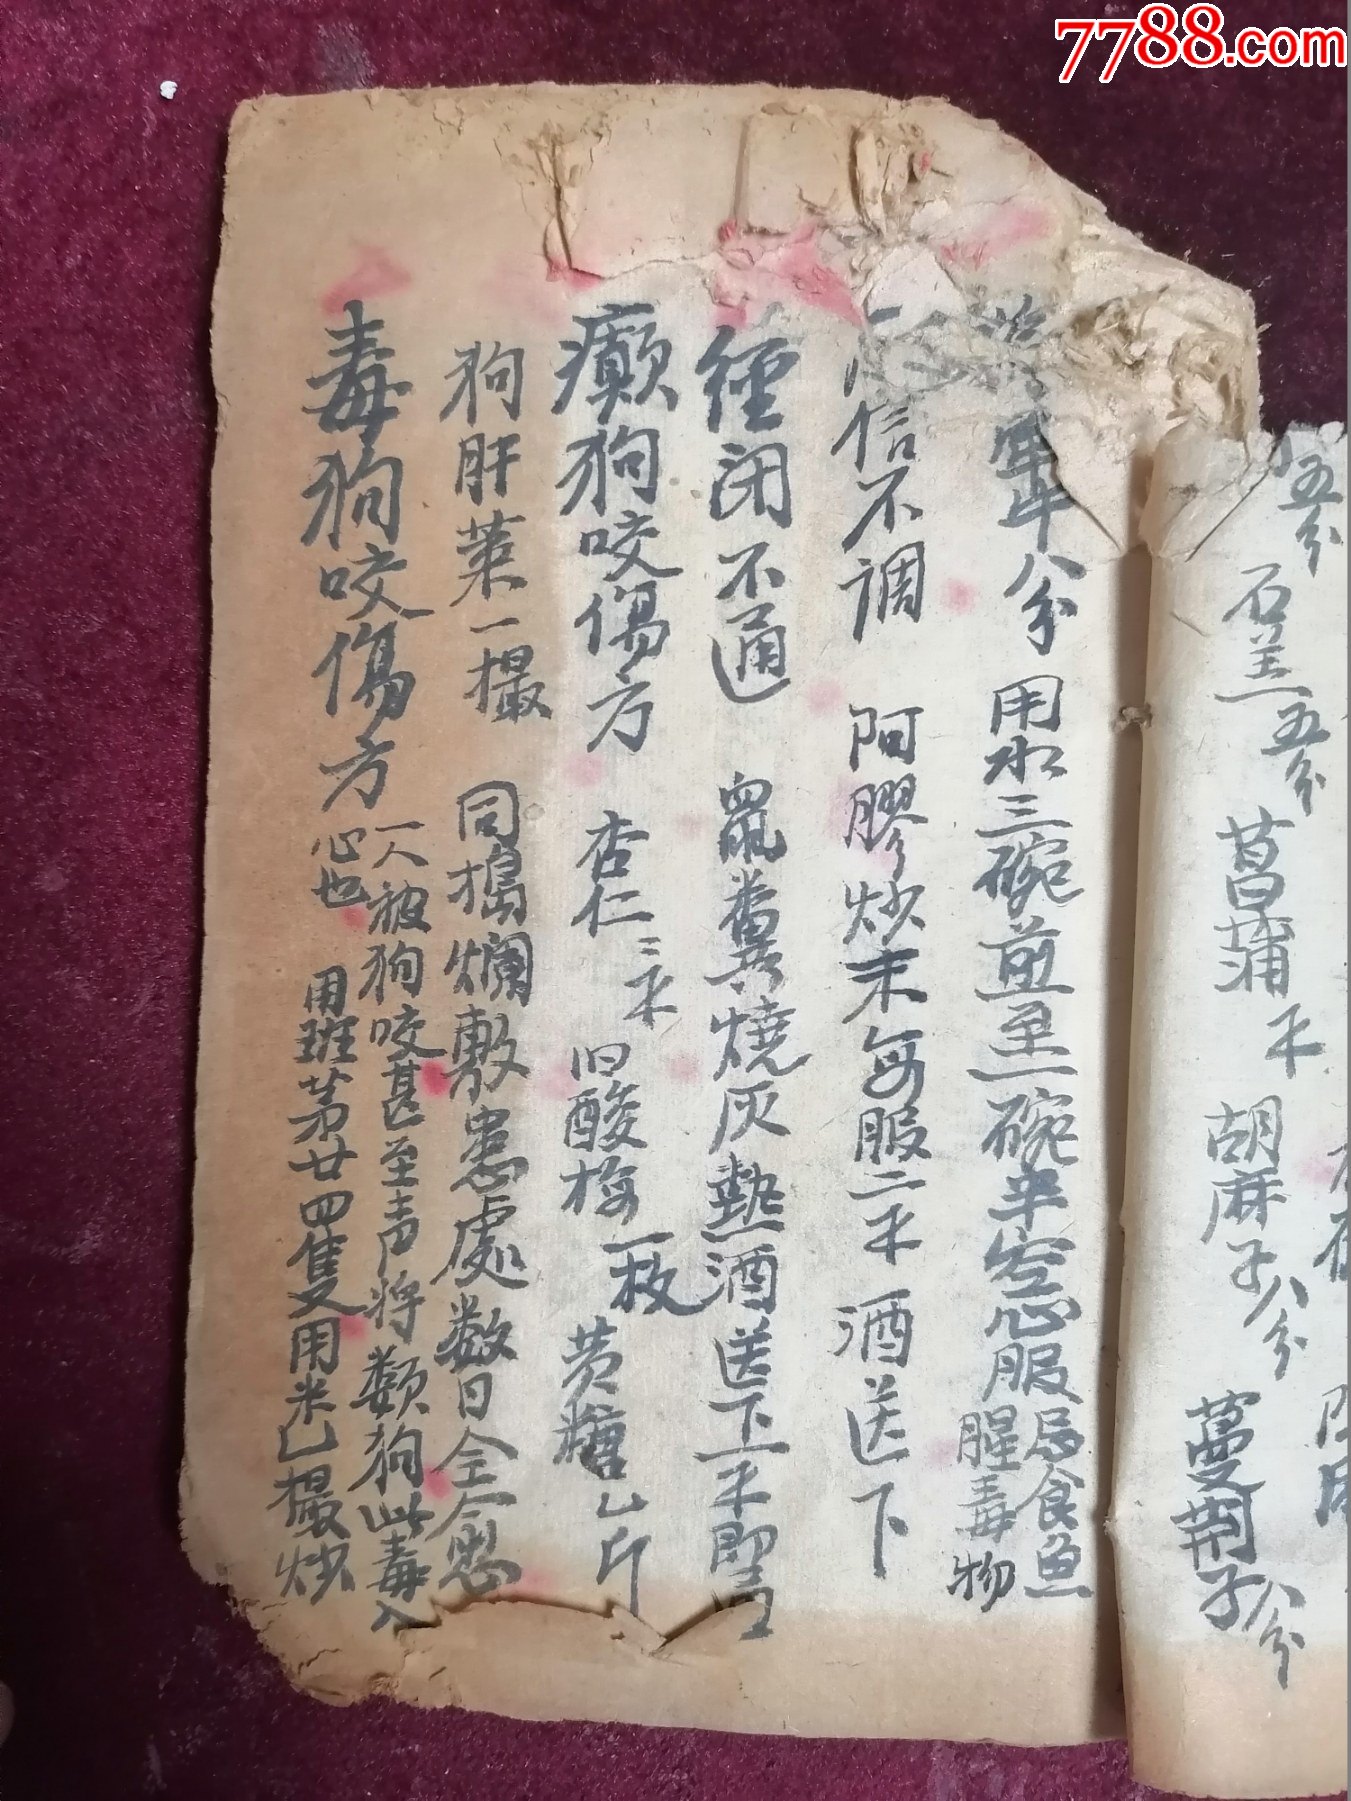 7788.com
五分 石羔五分 菖蒲 胡麻子八分 蔓荊子八分
八分 用水三碗煎至一碗半空心服 忌食魚腥毒物
信不調 阿膠炒末每服二 酒送下
經闭不通 鼠糞燒灰熱酒送下
癲狗咬傷方 杏仁三 旧酸梅一枚 黄糖乚斤
狗肝菜一撮 同搗爛敷患處数日全愈
毒狗咬傷方 一人被狗咬甚至声将類狗此毒入心也 用班茅廿四隻用米乚撮炒